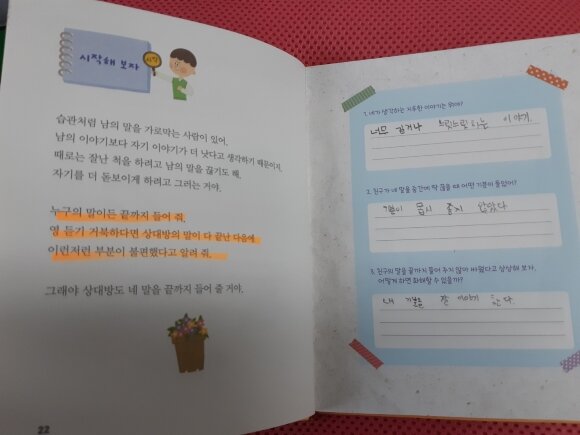 시작해 보자
시작
습관처럼 남의 말을 가로막는 사람이 있어.
남의 이야기보다 자기 이야기가 더 낫다고 생각하기 때문이지.
때로는 잘난 척을 하려고 남의 말을 끊기도 해.
자기를 더 돋보이게 하려고 그러는 거야.
누구의 말이든 끝까지 들어 줘.
영 듣기 거북하다면 상대방의 말이 다 끝난 다음에
이런저런 부분이 불편했다고 알려 줘.
그래야 상대방도 네 말을 끝까지 들어 줄 거야.
22
1. 네가 생각하는 지루한 이야기는 뭐야?
너무 길거나 느릿느릿하는 이야기.
2. 친구가 네 말을 중간에 딱 끊을 때 어떤 기분이 들었어?
기분이 몹시 좋지 않았다
3. 친구의 말을 끝까지 들어 주지 않아 싸웠다고 상상해 보자.
어떻게 하면 화해할 수 있을까?
내 기분을 잘 이야기 한다.